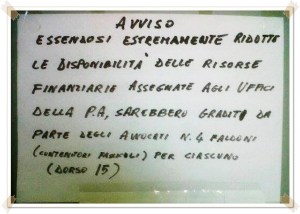 AVVISO
ESSENDOSI ESTREMAMENTE RIDOTTE
LE DISPONIBILITÀ DELLE RISORSE
FINANZIARIE ASSEGNATE AGLI UFFICI
DELLA P.A, SAREBBERO GRADITI DA
PARTE DEGLI AVVOCATI N. 4 FALDONI
(CONTENITORI FASCICOLI) PER CIASCUNO
(DORSO 15)